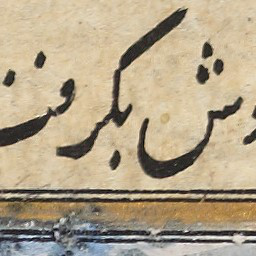 وش بكرفت